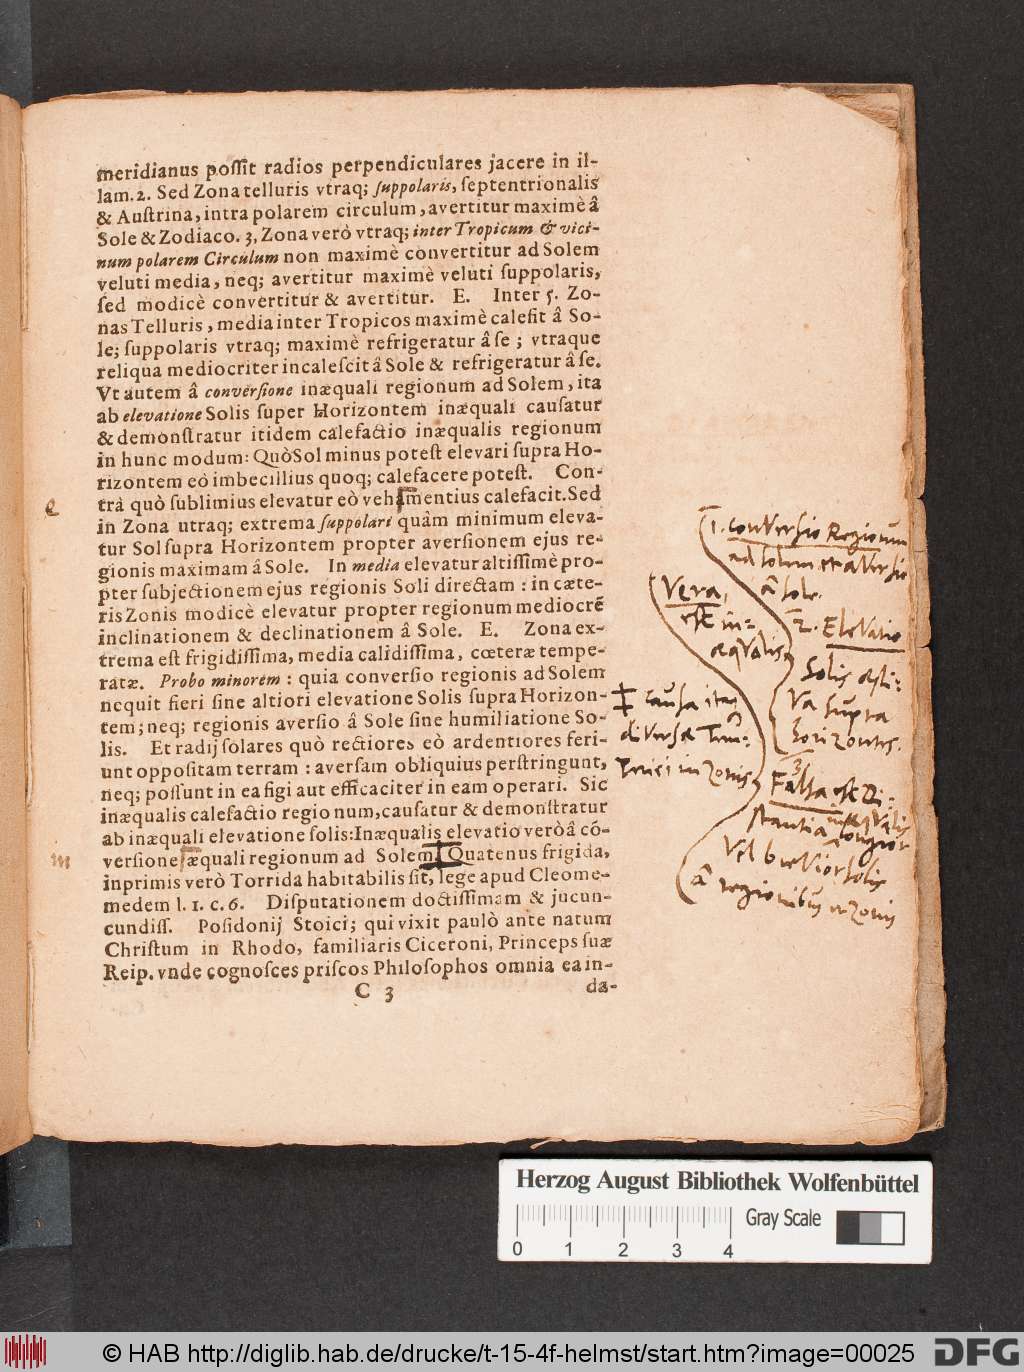 meridianus poſſit radios perpendiculares jacere in il-
lam. 2. Sed Zona telluris vtraq; ſuppolaris, ſeptentrionalis
& Auſtrina, intra polarem circulum, avertitur maximè â
Sole & Zodiaco. 3, Zona verò vtraq; inter Tropicum & vici-
num polarem Circulum non maximè convertitur ad Solem
veluti media, neq; avertitur maximè veluti ſuppolaris,
ſed modicè convertitur & avertitur. E. Inter 5. Zo-
nas Telluris, media inter Tropicos maximè calefit â So-
le; ſuppolaris vtraq; maximè refrigeratur â ſe; vtraque
reliqua mediocriter incaleſcit â Sole & refrigeratur â ſe.
Vt autem â converſione inæquali regionum ad Solem, ita
ab elevatione Solis ſuper Horizontem inæquali cauſatur
& demonſtratur itidem calefactio inæqualis regionum
in hunc modum: Quò Sol minus poteſt elevari ſupra Ho-
rizontem eò imbecillius quoq; calefacere poteſt. Con-
trà quò ſublimius elevatur eò vehamentius calefacit. Sed
e
in Zona utraq; extrema ſuppolari quàm minimum eleva-
tur Sol ſupra Horizontem propter averſionem ejus re-
gionis maximam â Sole. In media elevatur altiſſimè pro-
pter ſubjectionem ejus regionis Soli directam: in cæte-
ris Zonis modicè elevatur propter regionum mediocrē
inclinationem & declinationem â Sole. E. Zona ex-
trema eſt frigidiſſima, media calidiſſima, cœteræ tempe-
ratæ. Probo minorem: quia converſio regionis ad Solem
nequit fieri ſine altiori elevatione Solis ſupra Horizon-
tem; neq; regionis averſio â Sole ſine humiliatione So-
lis. Et radij ſolares quò rectiores eò ardentiores feri-
unt oppoſitam terram: averſam obliquius perſtringunt,
neq; poſſunt in ea figi aut efficaciter in eam operari. Sic
inæqualis calefactio regionum, cauſatur & demonſtratur
ab inæquali elevatione ſolis: Inæqualis elevatio verò â cō-
verſione æquali regionum ad Solem. Quatenus frigida,
in
inprimis verò Torrida habitabilis ſit, lege apud Cleome-
medem l. 1. c. 6. Diſputationem doctiſſimam & jucun-
cundiſſ. Poſidonij Stoici; qui vixit paulò ante natum
Chriſtum in Rhodo, familiaris Ciceroni, Princeps ſuæ
Reip. vnde cognoſces priſcos Philoſophos omnia ea in-
C 3
da-
‡ Causa itaq
diversæ Tem-
periei in Zonis
Vera,
est in=
æqualis
1. conversio Regionum
ad solem et aversio
â sole.
2. Elevatio
Solis
va supra
horizontis.
3
Falsa est Di-
stantia inæqualis
longior
vel brevior solis
â regionibus